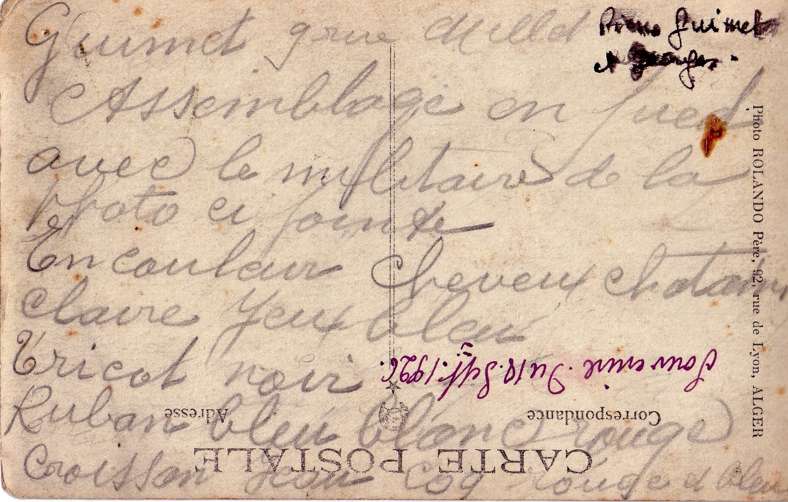 Guimet 9 rue Mellet
Pierre Guimet
Assemblage en pied
avec le militaire de la
photo ci jointe
En couleur Cheveux chatains
claire yeux bleu
Tricot noir
Ruban bleu blanc rouge
Croissan Coq rouge et bleu
Souvenire Du 10. Sept. 1926.
Correspondance
Adresse
CARTE POSTALE
Photo ROLANDO Père, 92, rue de Lyon, ALGER